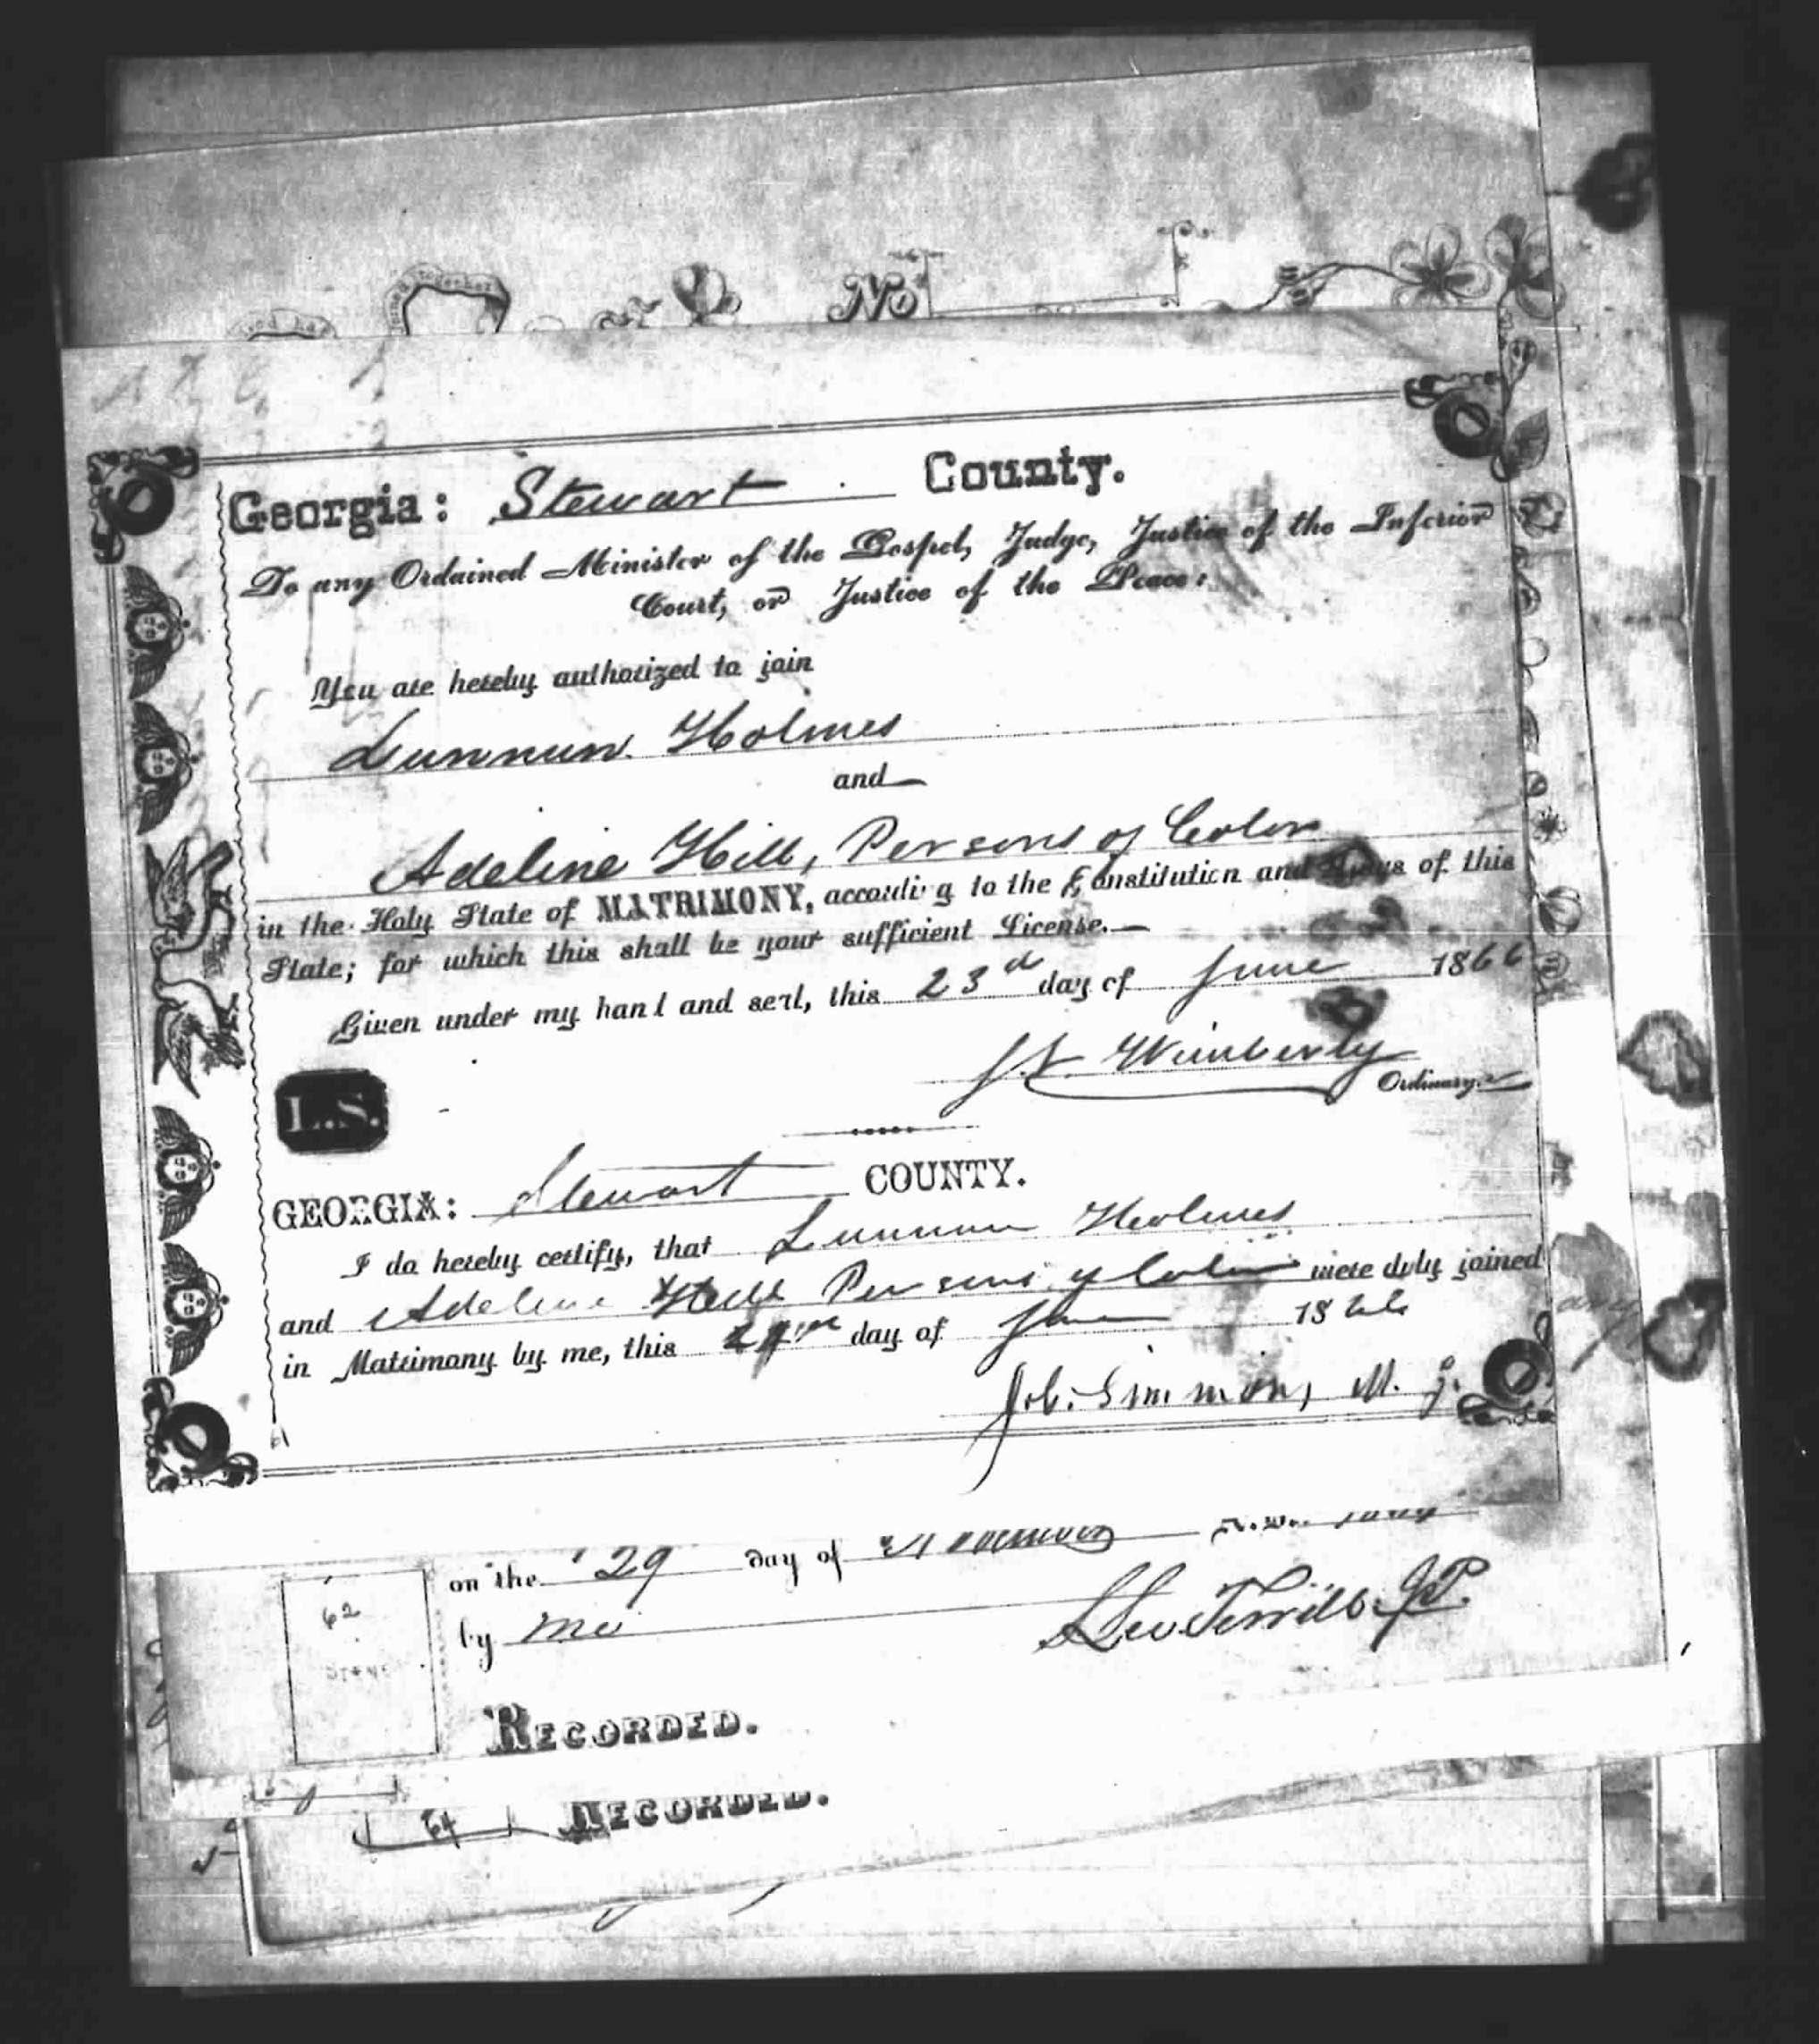 No
Georgia: Stewart County.
To any Ordained Minister of the Gospel, Judge, Justice of the Inferior
Court, or Justice of the Peace:
You are hereby authorized to join
Lunnun Holmes
and
Adeline Hill, Persons of Color
in the Holy State of MATRIMONY, according to the Constitution and Laws of this
State; for which this shall be your sufficient License.
Given under my hand and seal, this 23d day of June 1866
J. L. Wimberly
Ordinary.
L.S.
GEORGIA: Stewart COUNTY.
I do hereby certify, that Lunnun Holmes
and Adeline Hill Persons of Color were duly joined
in Matrimony by me, this day of June 1866
J. C. Simmons, M. G.
on the 29 day of
by me
J.P.
62
RECORDED.
64 RECORDED.